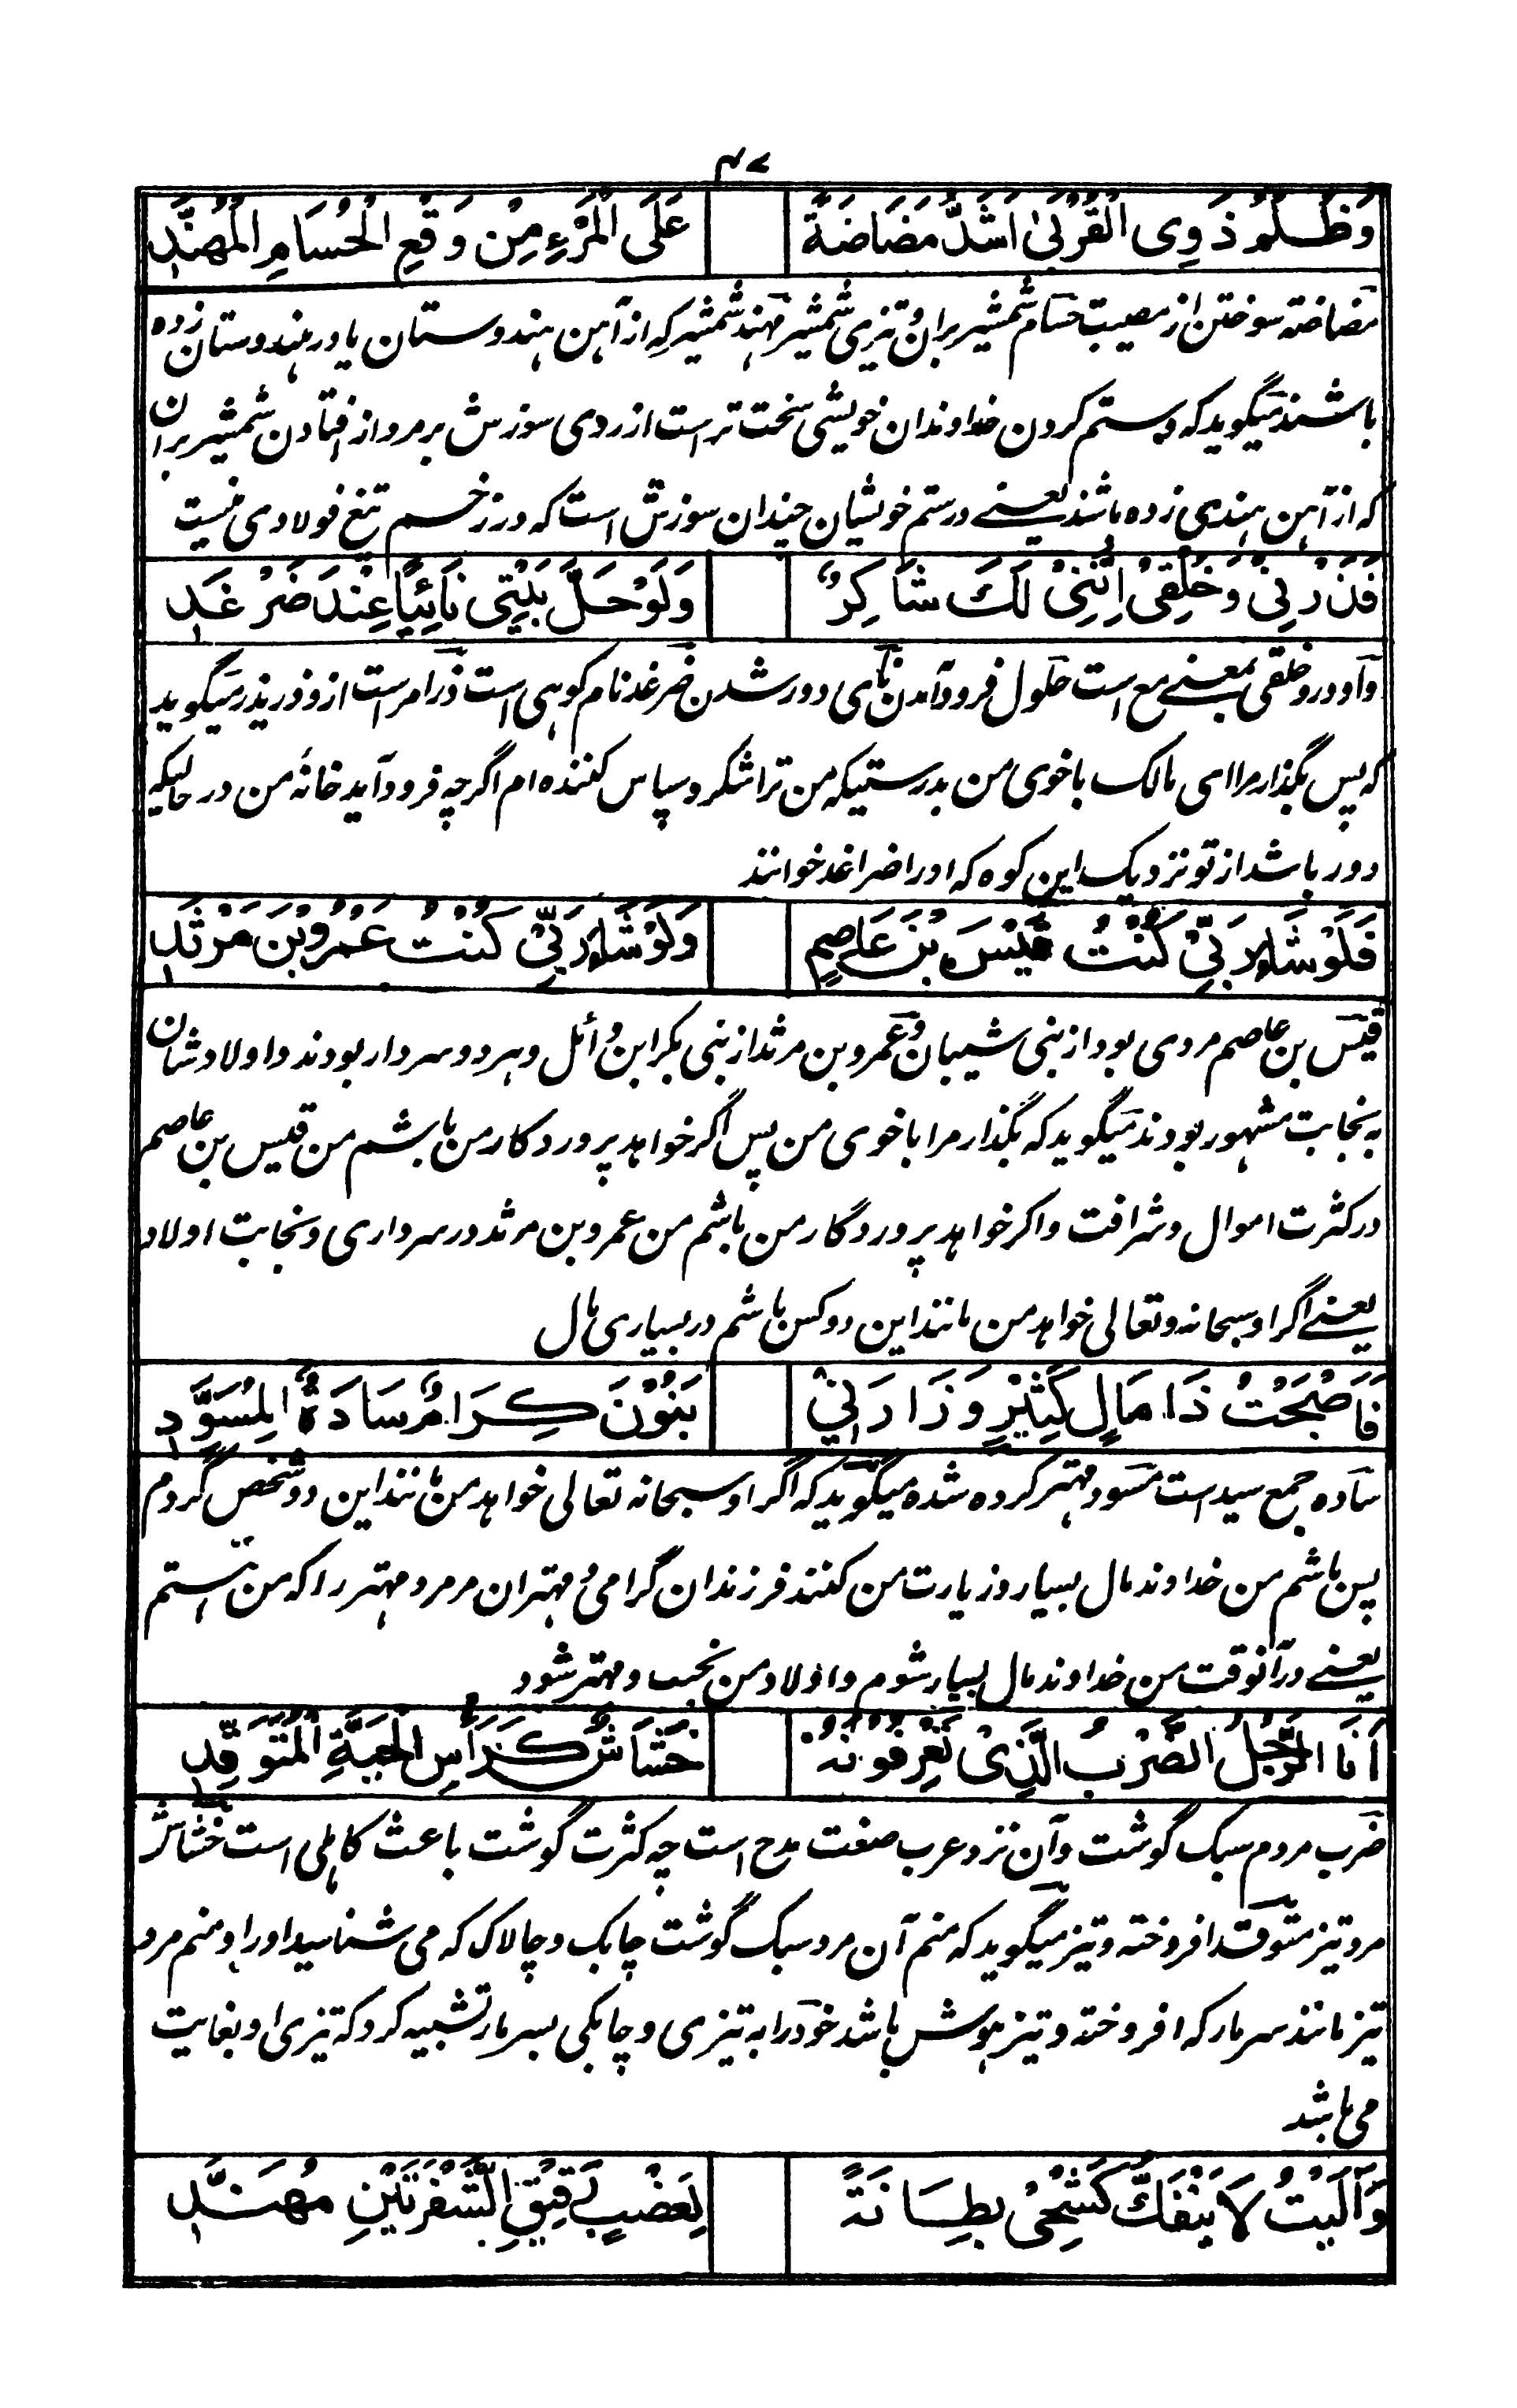 ۴۷
وَظُلْمُ ذَوِی الْقُرْبیٰ اَشَدُّ مَضَاضَةً عَلَی الْمَرْءِ مِنْ وَقْعِ الْحُسَامِ الْمُهَنَّدِ
مضاضته سوختن از مصیبت حسام شمشیر بران و تیزی شمشیر مهند شمشیر که از آهن هندوستان یا در هندوستان زده
باشند میگوید که و ستم کردن خداوندان خویشی سخت تر است از روی سوزش بر مرد از افتادن شمشیر بران
که از آهن هندی زده باشند یعنے در ستم خویشان چندان سوزش است که در زخم تیغ فولادی نیست
فَذَرْنِیْ وَخُلْقِیْ اِنَّنِیْ لَكَ شَاكِرٌ وَلَوْ حَلَّ بَیْتِی نَائِیًا عِنْدَ ضَرْغَدِ
واو در و خلقی بمعنے مع است حلول فرود آمدن نای دور شدن ضرغد نام کوهی است ذر امر است از وذر یذر میگوید
که پس بگذار مرا ای مالک با خوی من بدرستیکه من ترا شکر و سپاس کننده ام اگرچه فرود آید خانهٔ من در حالیکه
دور باشد از تو نزدیک این کوه که او را ضراغد خوانند
فَلَوْ شَاءَ رَبِّیْ كُنْتُ قَیْسَ بْنَ عَاصِمٍ وَلَوْ شَاءَ رَبِّیْ كُنْتُ عَمْرَو بْنَ مَرْثَدِ
قیس بن عاصم مردی بود از بنی شیبان و عمرو بن مرثد از بنی بکر ابن وائل و هر دو سردار بودند و اولاد شان
به نجابت مشهور بودند میگوید که بگذار مرا با خوی من پس اگر خواهد پروردکار من باشم من قیس بن عاصم
در کثرت اموال و شرافت و اکر خواهد پروردگار من باشم من عمرو بن مرثد در سرداری و نجابت اولاد
یعنے اگر او سبحانه و تعالی خواهد من مانند این دو کس باشم در بسیاری مال
فَاَصْبَحْتُ ذَا مَالٍ كَثِیْرٍ وَزَارَنِیْ بَنُوْنَ كِرَامٌ سَادَةٌ لِمُسَوَّدِ
ساده جمع سید است مسود مهتر کرده شده میگوید که اگر او سبحانه تعالی خواهد من مانند این دو شخص گردم
پس باشم من خداوند مال بسیار و زیارت من کنند فرزندان گرامی و مهتران مر مرد مهتر را که من هستم
یعنے در آنوقت من خداوند مال بسیار شوم و اولاد من نجیب و مهتر شود
اَنَا الرَّجُلُ الضَّرْبُ الَّذِیْ تَعْرِفُوْنَهُ خَشَاشٌ كَرَأْسِ الْحَیَّةِ الْمُتَوَقِّدِ
ضرب مردم سبک گوشت و آن نزد عرب صفت مدح است چه کثرت گوشت باعث کاهلی است خشاش
مرد تیز متوقد افروخته و تیز میگوید که منم آن مرد سبک گوشت چابک و چالاک که می شناسید او را و منم مرد
تیز مانند سر مار که افروخته و تیز هوش باشد خود را به تیزی و چابکی بسر مار تشبیه کرد که تیزی او بغایت
می باشد
وَآلَیْتُ لَا یَنْفَكُّ كَشْحِیْ بِطَانَةً لِعَضْبٍ رَقِیْقِ الشَّفْرَتَیْنِ مُهَنَّدِ